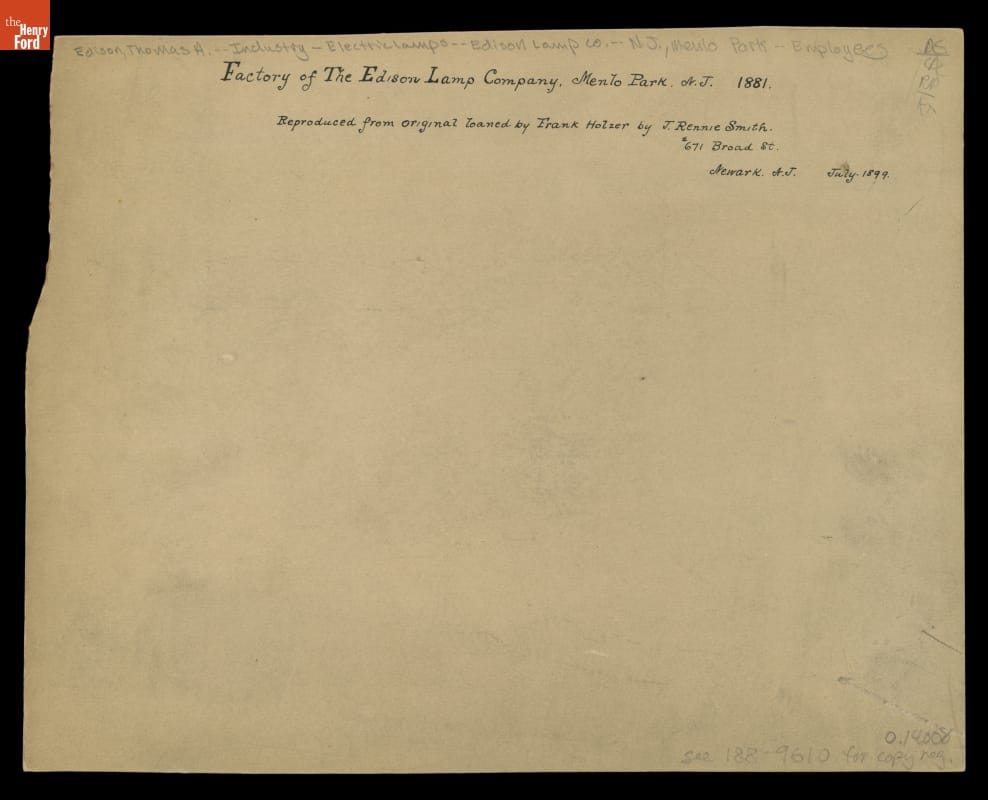 the
Henry
Ford
Edison, Thomas A. -- Industry - Electric lamps -- Edison Lamp Co. -- N.J., Menlo Park - Employees
Factory of The Edison Lamp Company, Menlo Park. N.J. 1881.
Reproduced from original loaned by Frank Holzer by J. Rennie Smith.
#671 Broad St.
Newark. N.J. July. 1899.
0.14008
see 188-9610 for copy neg.